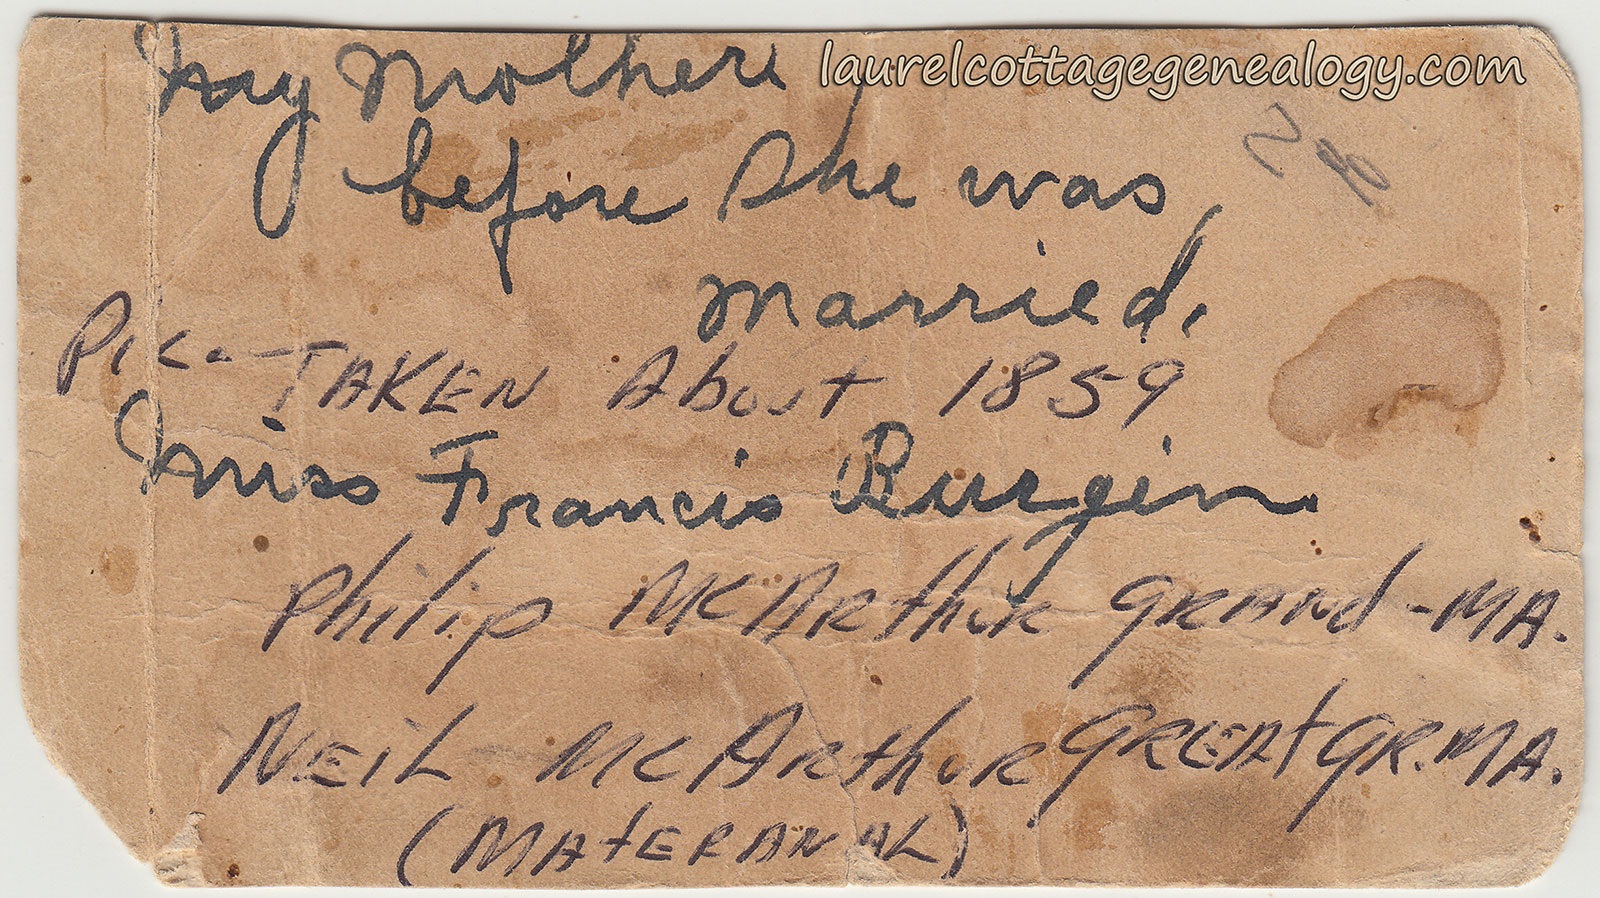 My Mother
laurelcottagegenealogy.com
before she was
married.
Pic. TAKEN About 1859
Miss Francis Burgin
Philip McArthur GRAND-MA.
NEIL McArthur GREAT GR.MA.
(MATERANAL)